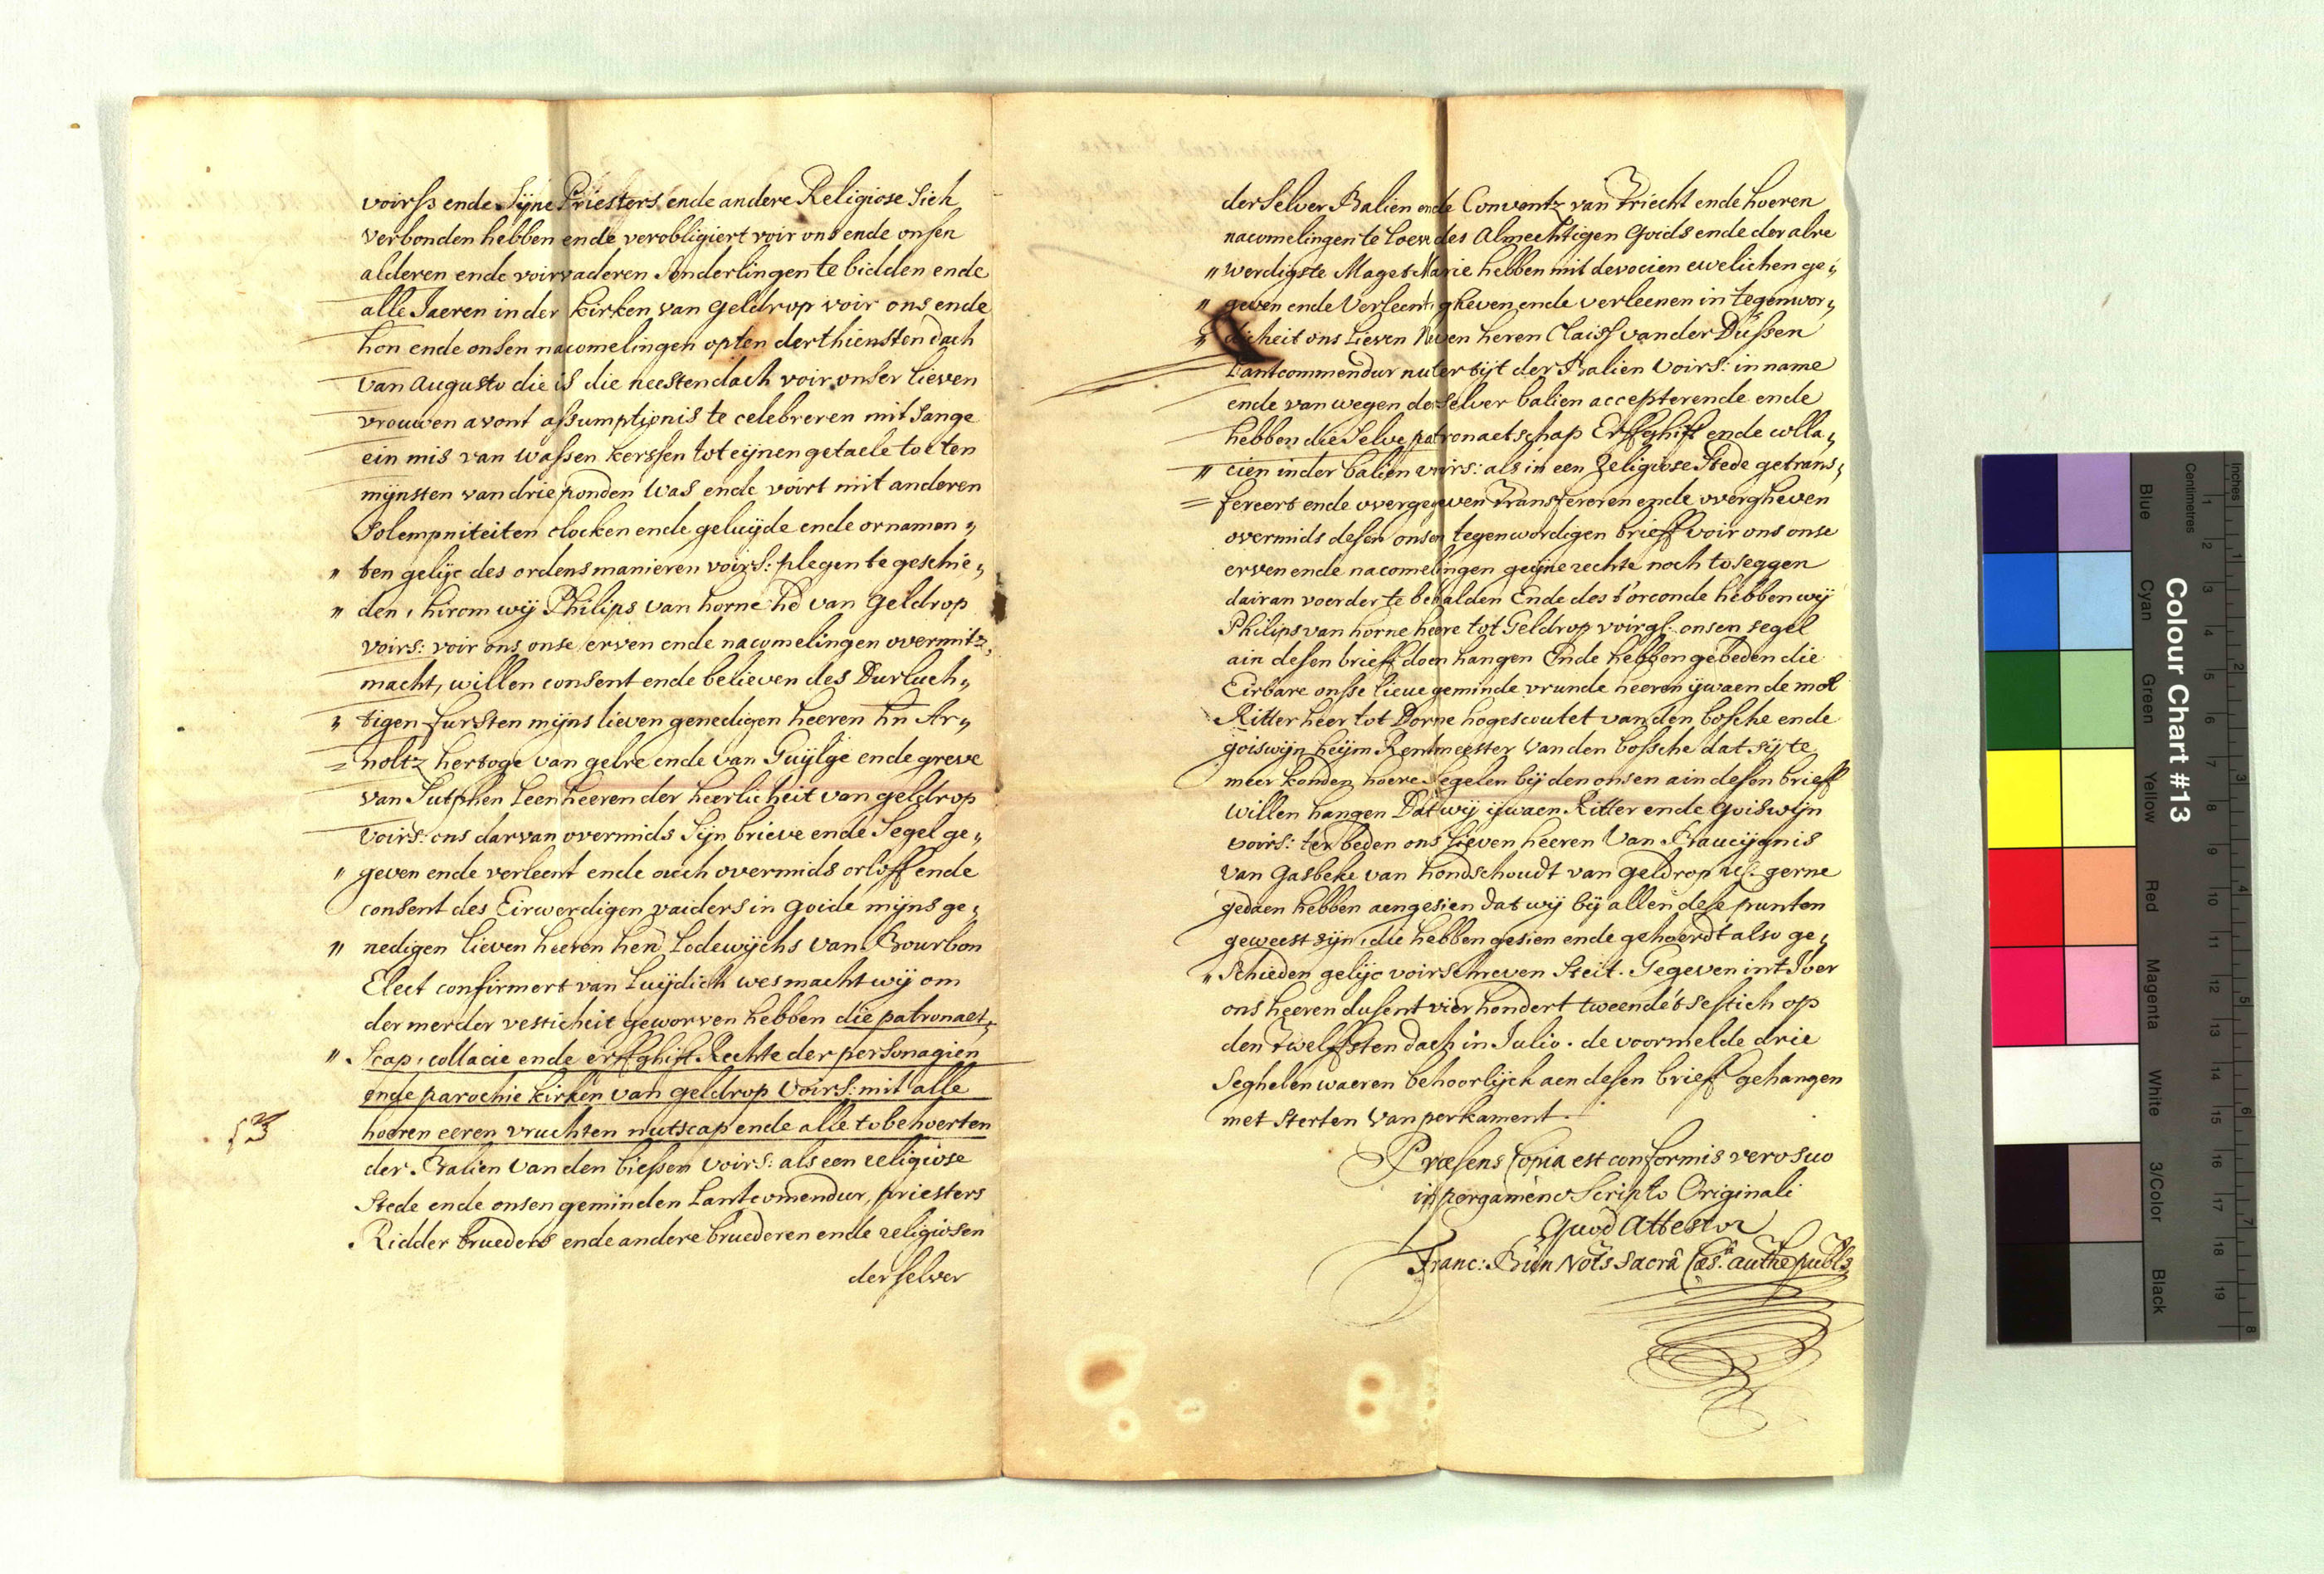 voirss ende Sijne Priesters ende andere Religiose Sich
verbonden hebben ende verobligiert voir ons ende onsen
alderen ende voirvaderen Sonderlingen te bidden ende
alle Jaeren in der kirken van geldrop voir ons ende
hon ende onsen nacomelingen opten derthiensten dach
van augusto die is die neesten dach voir onser lieven
vrouwen avont assumptionis te celebreren mit Sange
ein mis van wassen kerssen tot eijnen getaele tot ten
mijnsten van drie ponden was ende voirt mit anderen
Solempniteiten clocken ende geluijde ende ornamen„
„ ten gelijc des ordens manieren voirs: plegen te geschie„
„ den, hirom wij Philips van horne hē van geldrop
voirs: voir ons onse erven ende nacomelingen overmitz
macht, willen consent ende believen des Durluch„
„ tigen fursten mijns lieven genedigen heeren hn Ar„
= noltz hertoge van gelre ende van Guijlge ende greve
van Sutphen Leenheeren der heerlicheit van geldrop
voirs: ons darvan overmids Sijn brieve ende Segel ge„
„ geven ende verleent ende ouch overmids orloff ende
consent des Eirwerdigen vaiders in goide mijns ge„
„ nedigen lieven heeren hen Lodewijchs van Bourbon
Elect confirmert van Luijdich wes macht wij om
der merder vesticheit geworven hebben die patronaet„
„ Scap, collacie ende erffghift Rechte der personagien
ende parochie kirken van geldrop voirs: mit alle
hoeren eeren vruchten nutscap ende alle tobehoerten
der Balien van den biessen voirs: als een religiose
Stede ende onsen geminden Lantcomendur, priesters
Ridder brueders ende andere bruederen ende religiosen
der selver
der Selver Balien ende Conventz van Triecht ende hoeren
nacomelingen te loeve des Almechtigen goids ende der alre
„ werdigste Maget Marie hebben mit devocien ewelichen ge„
„ geven ende verleent, gheven ende verleenen in tegenwor„
„ dicheit ons Lieven Neven heren Claiss van der Dussen
Lantcommendur nuter tijt der Balien voirs: in name
ende van wegen der Selver balien accepterende ende
hebben die Selve patronaetschap Erffghift ende colla„
„ cien in der balien voirs: als in een Religiose Stede getrans„
= fereert ende overgegeven Transfereren ende overgheven
overmids desen onsen tegenwordigen brieff voir ons onse
erven ende nacomelingen geijne rechte noch toseggen
dairan voerder te behalden Ende des t'orconde hebben wij
Philips van horne heere tot Geldrop voirgs: onsen segel
ain desen brieff doen hangen Ende hebben gebeden die
Eirbare onsse lieve geminde vrunde heeren ijwaen de mol
Ritter heer tot Dorne hogescoutet van den bosche ende
goiswijn heijm Rentmeester van den bossche dat sij te
meer konden hoere Segelen bij den onsen ain desen brieff
willen hangen Dat wij ijwaen Ritter ende goiswijn
voirs: ter beden ons Lieven heeren van Baucijgnis
van gasbeke van hondschoudt van geldrop gerne
gedaen hebben aengesien dat wij bij allen dese punten
geweest sijn, die hebben gesien ende gehoerdt also ge„
„ Schieden gelijc voirschreven Steit. Gegeven int Joer
ons heeren dusent vier hondert tweende t'sestich op
den Twelfsten dach in Julio. de voormelde drie
Seghelen waeren behoorlijck aen desen brief gehangen
met sterten van perkament.
13
Præsens Copia est conformis vero suo
in pergameno Scripto Originali
Quod Attestor
Franc: Bun Nots Sacrâ Cæsa authe publs
Colour Chart #13
Inches
Centimetres
1 2 3 4 5 6 7 8 9 10 11 12 13 14 15 16 17 18 19
1 2 3 4 5 6 7 8
Blue Cyan Green Yellow Red Magenta White 3/Color Black